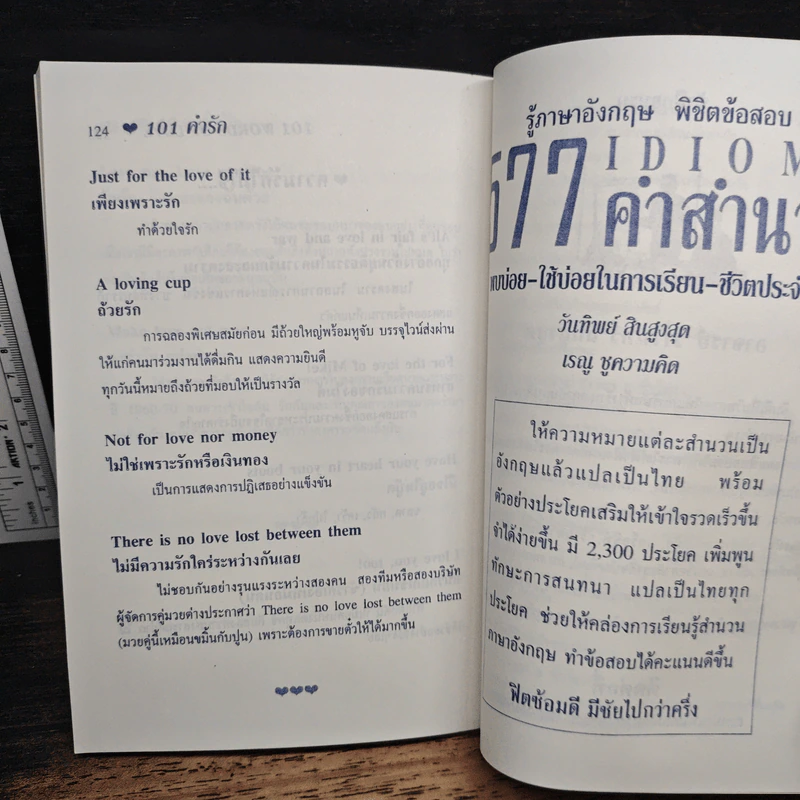 124 ❤ 101 คำรัก
Just for the love of it
เพียงเพราะรัก
ทำด้วยใจรัก
A loving cup
ถ้วยรัก
การฉลองพิเศษสมัยก่อน มีถ้วยใหญ่พร้อมหูจับ บรรจุไวน์ส่งผ่าน
ให้แก่คนมาร่วมงานได้ดื่มกิน แสดงความยินดี
ทุกวันนี้หมายถึงถ้วยที่มอบให้เป็นรางวัล
Not for love nor money
ไม่ใช่เพราะรักหรือเงินทอง
เป็นการแสดงการปฏิเสธอย่างแข็งขัน
There is no love lost between them
ไม่มีความรักใคร่ระหว่างกันเลย
ไม่ชอบกันอย่างรุนแรงระหว่างสองคน สองทีมหรือสองบริษัท
ผู้จัดการคู่มวยต่างประกาศว่า There is no love lost between them
(มวยคู่นี้เหมือนขมิ้นกับปูน) เพราะต้องการขายตั๋วให้ได้มากขึ้น
❤❤❤
รู้ภาษาอังกฤษ พิชิตข้อสอบ
577 IDIOM
คำสำนว
พบบ่อย-ใช้บ่อยในการเรียน-ชีวิตประจำ
วันทิพย์ สินสูงสุด
เรณู ชูความคิด
ให้ความหมายแต่ละสำนวนเป็น
อังกฤษแล้วแปลเป็นไทย พร้อม
ตัวอย่างประโยคเสริมให้เข้าใจรวดเร็วขึ้น
จำได้ง่ายขึ้น มี 2,300 ประโยค เพิ่มพูน
ทักษะการสนทนา แปลเป็นไทยทุก
ประโยค ช่วยให้คล่องการเรียนรู้สำนวน
ภาษาอังกฤษ ทำข้อสอบได้คะแนนดีขึ้น
ฟิตซ้อมดี มีชัยไปกว่าครึ่ง